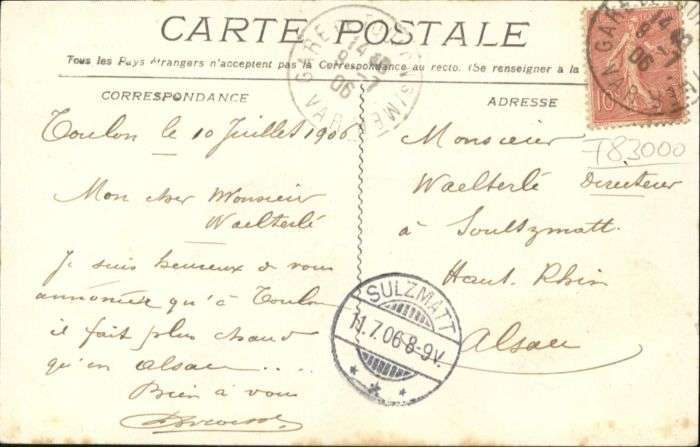 CARTE POSTALE
Tous les Pays étrangers n'acceptent pas la Correspondance au recto. (Se renseigner à la
CORRESPONDANCE
Toulon le 10 Juillet 1906
Mon cher Monsieur
Waelterlé
Je suis heureux de vous
annoncer qu'à Toulon
il fait plus chaud
qu'en Alsace ....
Bien à vous
ADRESSE
Monsieur
Waelterlé Directeur
à Soultzmatt
Haut-Rhin
Alsace
783000
10
GARE VAR
06
SULZMATT
11.7.06 8-9V.